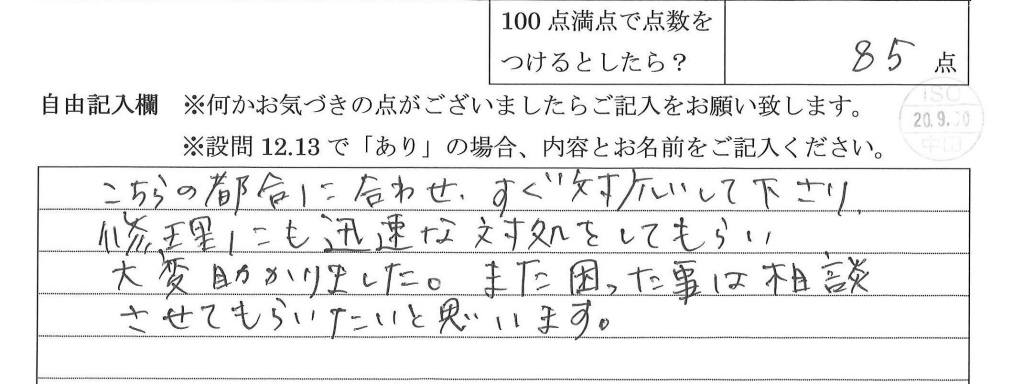 100 点満点で点数を
つけるとしたら？
85 点
自由記入欄 ※何かお気づきの点がございましたらご記入をお願い致します。
※設問 12.13 で「あり」の場合、内容とお名前をご記入ください。
ISO
20.9.
こちらの都合に合わせ、すぐ対応して下さり、
修理にも迅速な対処をしてもらい
大変助かりました。また困った事は相談
させてもらいたいと思います。